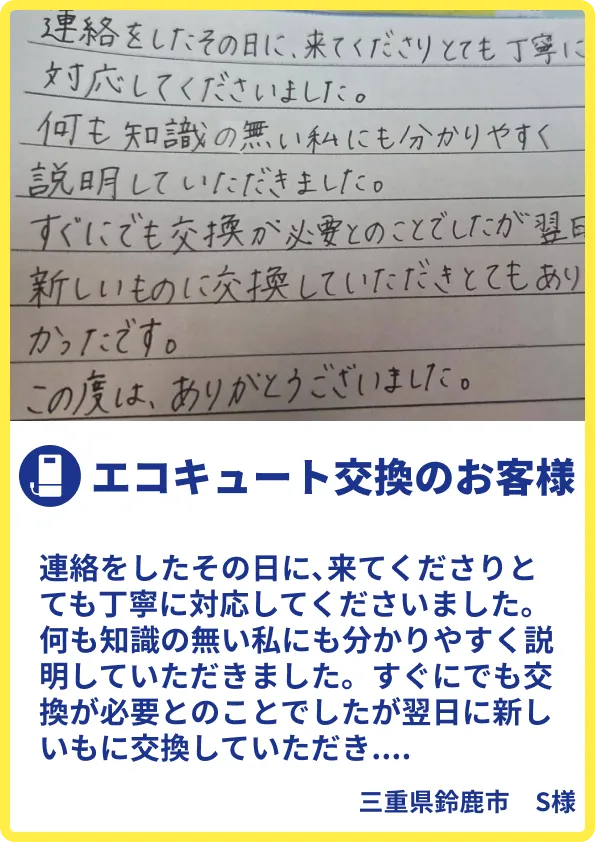 連絡をしたその日に、来てくださりとても丁寧に
対応してくださいました。
何も知識の無い私にも分かりやすく
説明していただきました。
すぐにでも交換が必要とのことでしたが翌日
新しいものに交換していただきとてもあり
かったです。
この度は、ありがとうございました。
エコキュート交換のお客様
連絡をしたその日に、来てくださりと
ても丁寧に対応してくださいました。
何も知識の無い私にも分かりやすく説
明していただきました。すぐにでも交
換が必要とのことでしたが翌日に新し
いもに交換していただき....
三重県鈴鹿市　S様